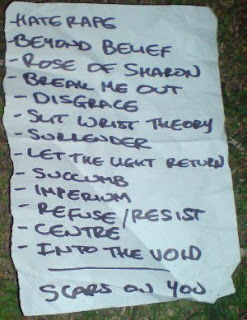 - HATERAPE
- BEYOND BELIEF
- ROSE OF SHARON
- BREAK ME OUT
- DISGRACE
- SLIT WRIST THEORY
- SURRENDER
- LET THE LIGHT RETURN
- SUCCUMB
- IMPERIUM
- REFUSE/RESIST
- CENTRE
- INTO THE VOID
SCARS ON YOU